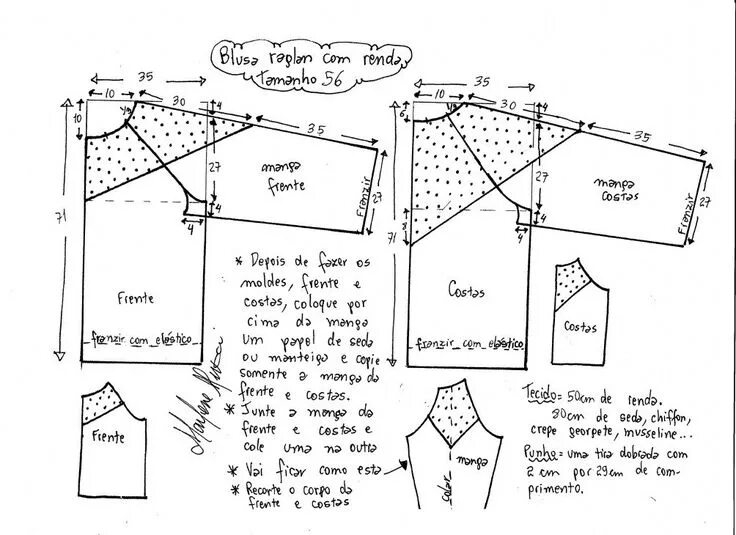 Blusa raglan com renda
tamanho 56
35
10
30
4
10
1/3
35
27
manga
frente
Franzir
27
4
4
71
Frente
franzir com elástico
35
10
30
4
6
1/3
35
27
manga
costas
Franzir
27
4
4
71
Costas
franzir com elástico
* Depois de fazer os
moldes, frente e
costas, coloque por
cima da manga
um papel de seda
ou manteiga e copie
somente a manga da
frente e costas.
* Junte a manga da
frente e costas e
cole uma na outra
* Vai ficar como esta
* Recorte o corpo da
frente e costas
Frente
Costas
manga
colar
Tecido = 50cm de renda.
80cm de seda, chiffon,
crepe georgete, musseline...
Punho = uma tira dobrada com
2 cm por 29cm de com-
primento.